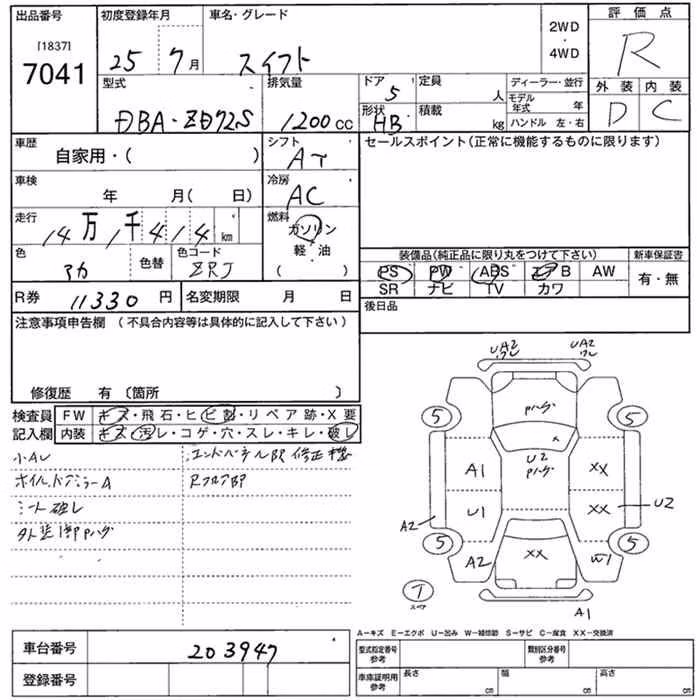 出品番号
[1837]
7041
初度登録年月
25 7 月
車名・グレード
スイフト
2WD
・
4WD
評価点
R
型式
DBA-ZD72S
排気量
1200 cc
ドア
5
定員
人
形状
HB
積載
kg
ディーラー・並行
モデル年式 年
ハンドル 左・右
外装 内装
D C
車歴
自家用・( )
シフト
AT
セールスポイント(正常に機能するものに限ります)
車検
年 月( 日)
冷房
AC
走行
14万1千414km
燃料
ガソリン
軽・油
( )
色
アカ
色替
色コード
ZRJ
装備品(純正品に限り丸をつけて下さい)
新車保証書
PS PW ABS エアB AW
有・無
SR ナビ TV カワ
R券
11330 円
名変期限 月 日
後日品
注意事項申告欄 (不具合内容等は具体的に記入して下さい)
修復歴 有〔箇所 〕
検査員
記入欄
FW キズ・飛石・ヒビ割・リペア跡・X要
内装 キズ・汚レ・コゲ・穴・スレ・キレ・破レ
小AU
ホイル、ドアミラーA
シート破レ
エンドパネル部修正機
Rフロア部
UA2
UA2
5
5
A1
U2
XX
A2
U1
XX
U2
5
A2
XX
W1
5
T
スペア
A1
A-キズ E-エクボ U-凹み W-補修跡 S-サビ C-腐食 XX-交換済
車台番号
203947
登録番号
型式指定番号
参考
類別区分番号
参考
車庫証明用
参考
長さ cm
幅 cm
高さ cm